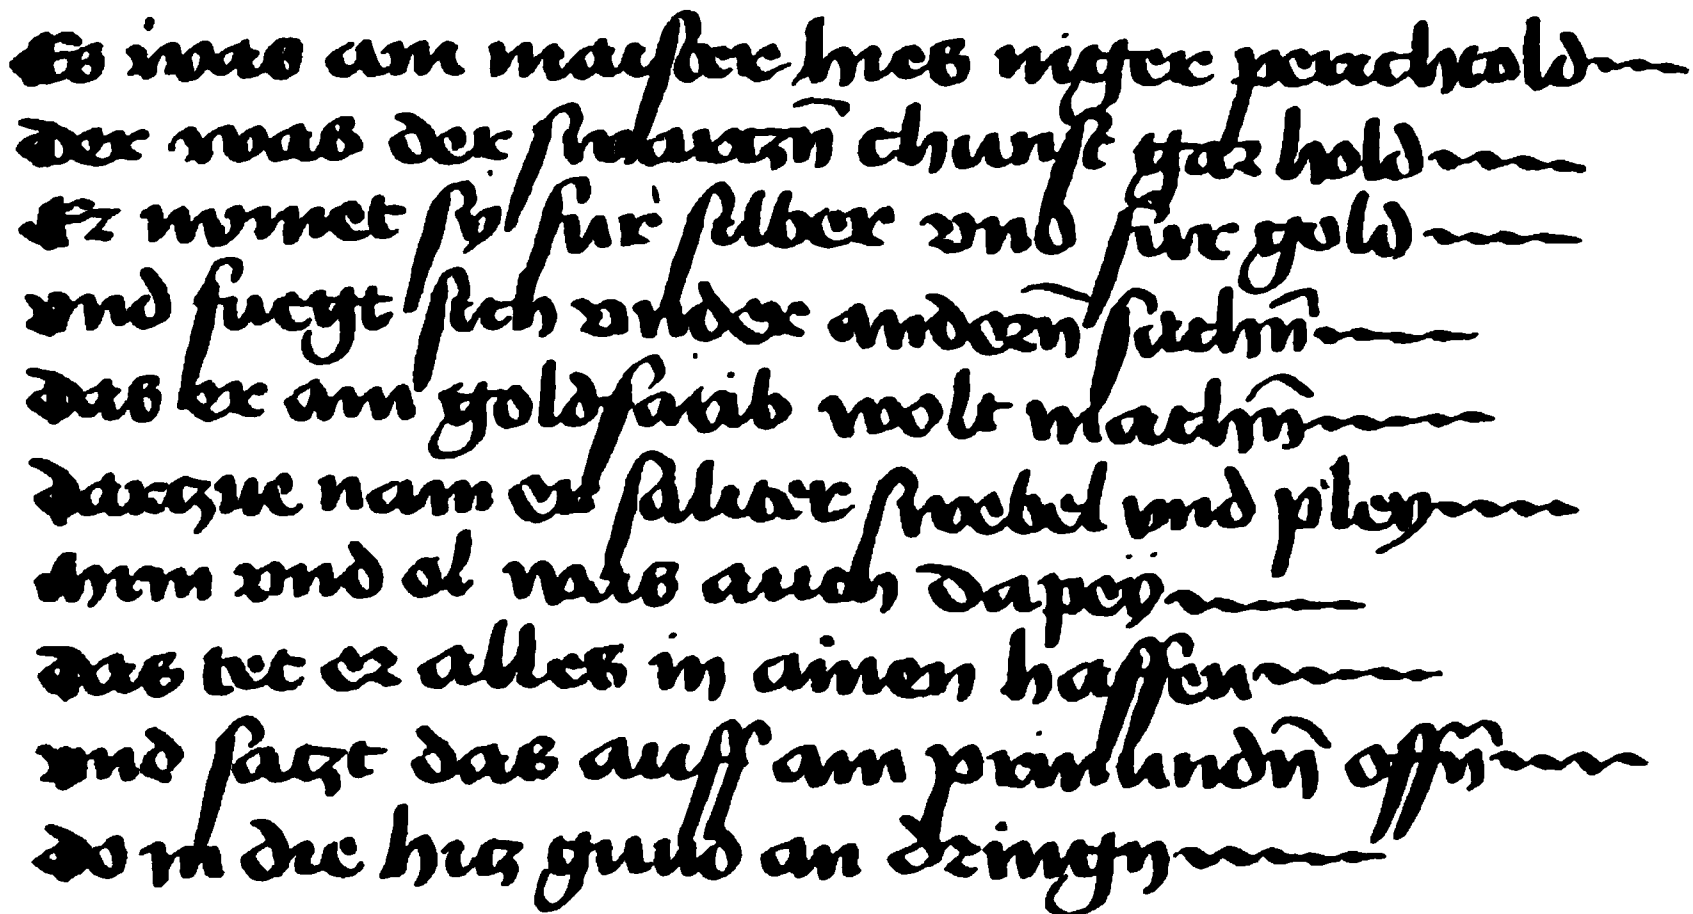 Es was ain maister hies niger perichtold
der was der swartzn̄ chunst gar hold
Er nymet sy fur silber vnd fur gold
vnd fuegt sich vnder andern̄ sachn̄
das er ain goldfarib wolt machn̄
darzue nam er saliter swebel vnd pley
ayrm vnd ol was auch dapeÿ
das tet er alles in ainen haffen
vnd satzt das auff ain prinundn̄ offn̄
do in die hitz gund an dringn